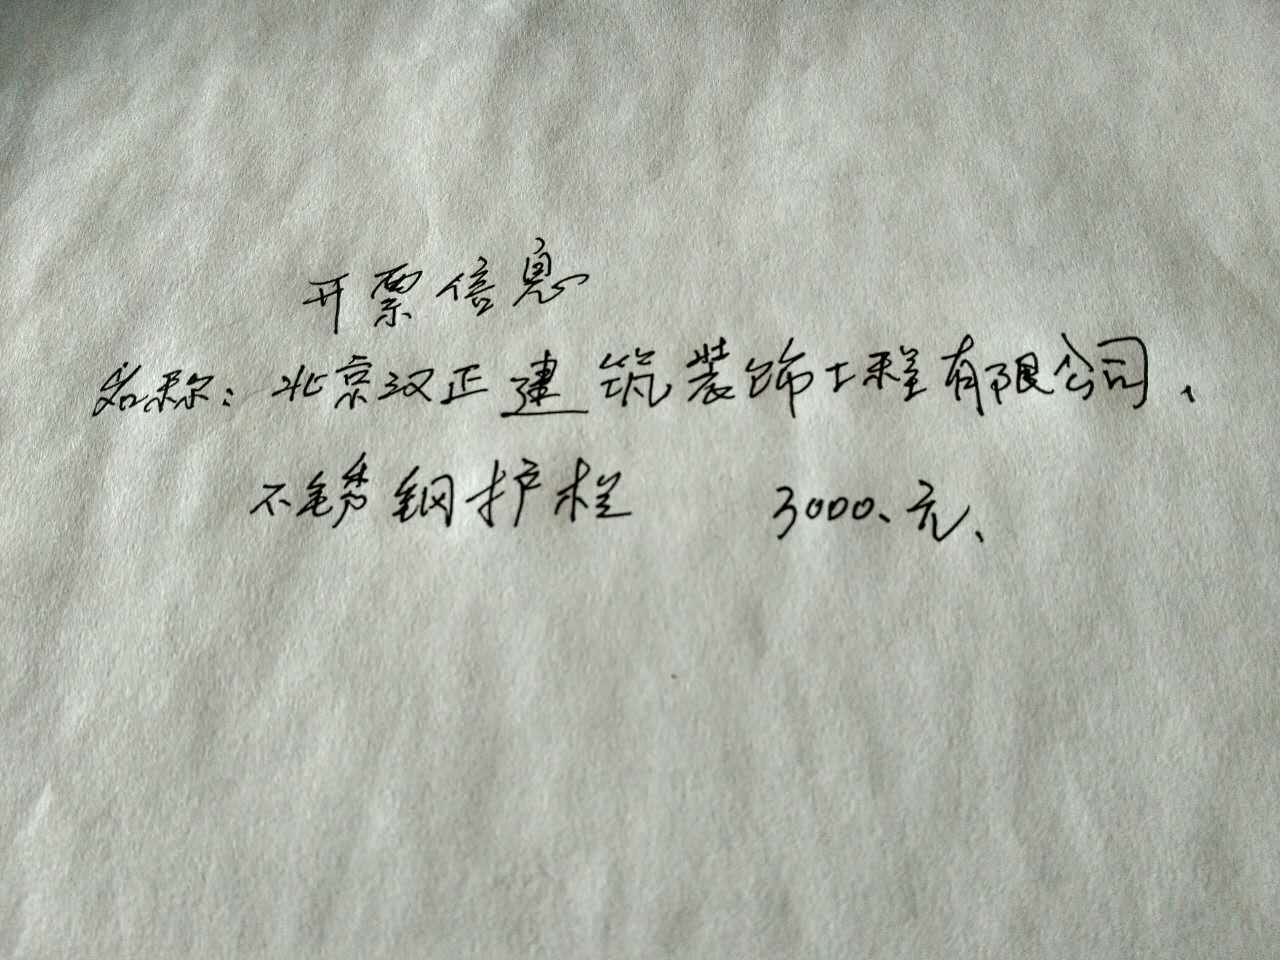 开票信息
名称：北京汉正建筑装饰工程有限公司、
不锈钢护栏 3000、元、